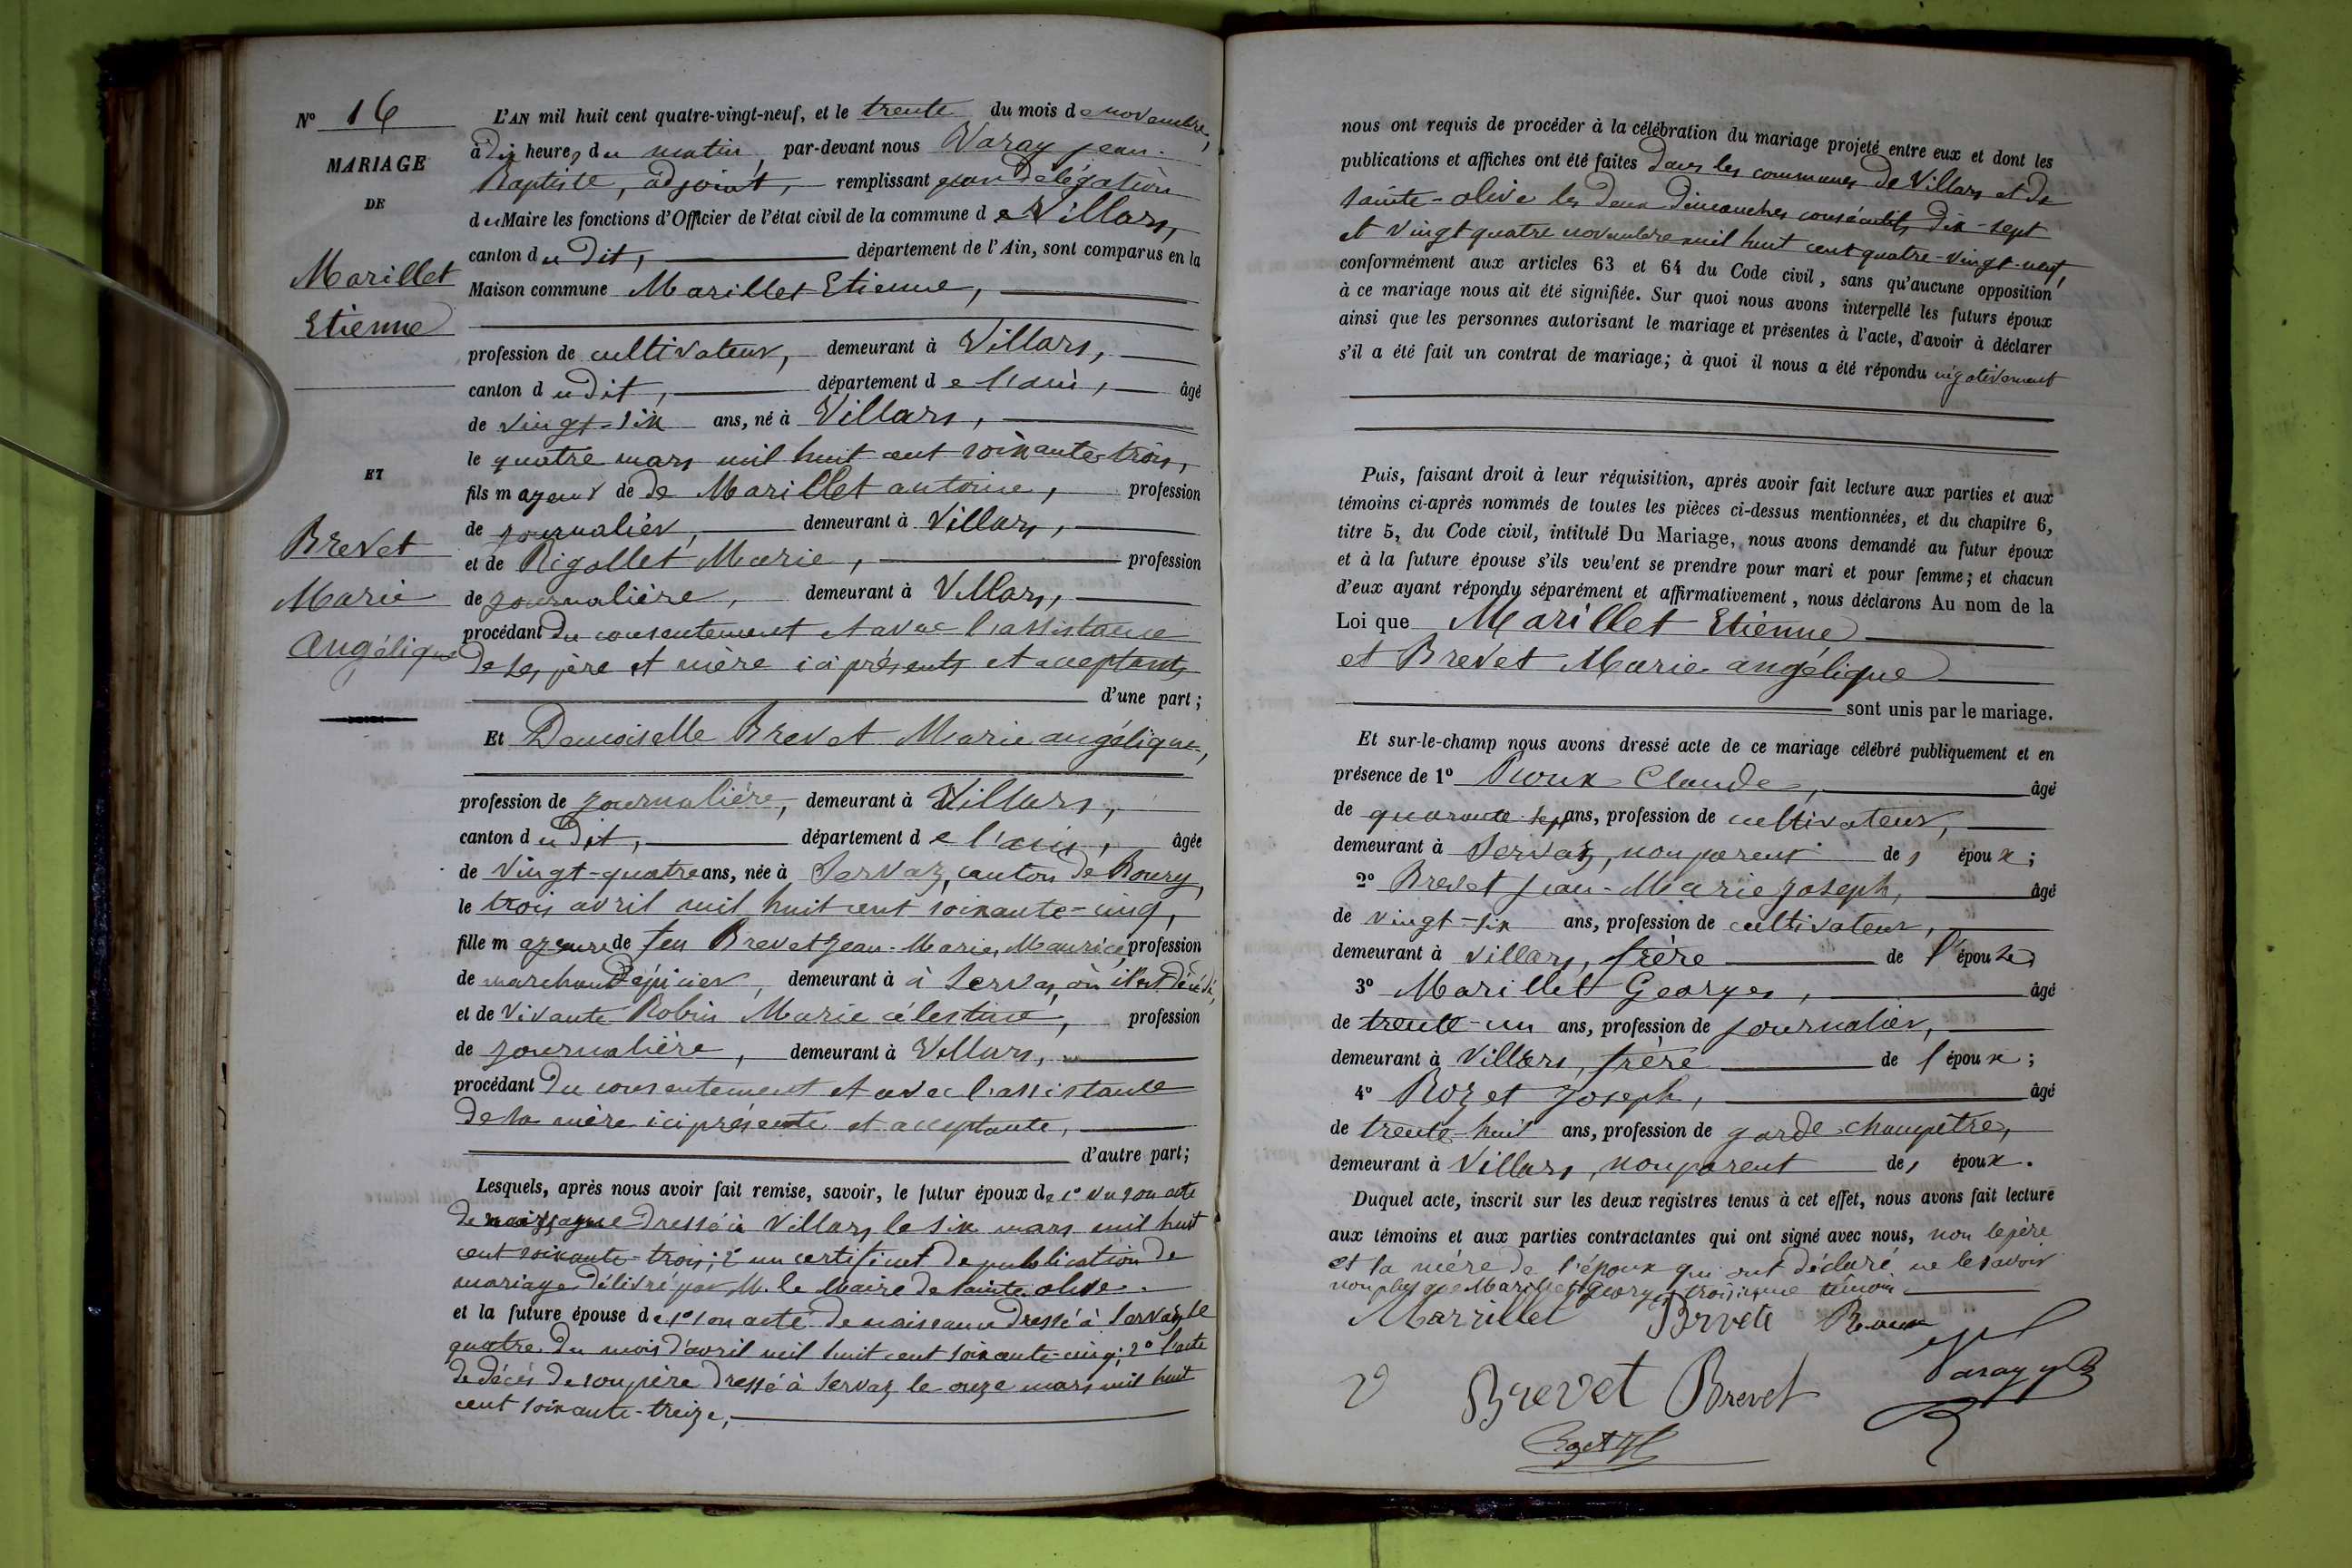 N° 16
MARIAGE
DE
Marillet
Etienne
ET
Brevet
Marie
Angélique
L'AN mil huit cent quatre-vingt-neuf, et le trente du mois de novembre,
à dix heures du matin, par-devant nous Varay jean-
Baptiste, adjoint, remplissant par délégation
du Maire les fonctions d'Officier de l'état civil de la commune de Villars,
canton dudit, département de l'Ain, sont comparus en la
Maison commune Marillet Etienne,
profession de cultivateur, demeurant à Villars,
canton dudit, département de l'ain, âgé
de vingt-six ans, né à Villars,
le quatre mars mil huit cent soixante-trois,
fils majeur de de Marillet antoine, profession
de journalier, demeurant à Villars,
et de Rigollet Marie, profession
de journalière, demeurant à Villars,
procédant du consentement et avec l'assistance
de ses père et mère ici présents et acceptants
d'une part;
Et Demoiselle Brevet Marie angélique,
profession de journalière, demeurant à Villars,
canton dudit, département de l'ain, âgée
de vingt-quatre ans, née à Servaz, canton de Bourg,
le trois avril mil huit cent soixante-cinq,
fille majeure de feu Brevet Jean-Marie Maurice, profession
de marchand épicier, demeurant à à Servas, où il est décédé,
et de vivante Robin Marie célestine, profession
de journalière, demeurant à Villars,
procédant du consentement et avec l'assistance
de sa mère ici présente et acceptante,
d'autre part;
Lesquels, après nous avoir fait remise, savoir, le futur époux de 1° son acte
de naissance dressé à Villars le six mars mil huit
cent soixante-trois; 2° un certificat de publication de
mariage délivré par M. le Maire de Sainte olive.
et la future épouse de 1° son acte de naissance dressé à Servaz le
quatre du mois d'avril mil huit cent soixante-cinq; 2° l'acte
de décès de son père dressé à Servaz le onze mars mil huit
cent soixante-treize,
nous ont requis de procéder à la célébration du mariage projeté entre eux et dont les
publications et affiches ont été faites dans les communes de Villars et de
Sainte-olive les deux dimanches consécutifs, dix-sept
et vingt quatre novembre mil huit cent quatre-vingt-neuf,
conformément aux articles 63 et 64 du Code civil, sans qu'aucune opposition
à ce mariage nous ait été signifiée. Sur quoi nous avons interpellé les futurs époux
ainsi que les personnes autorisant le mariage et présentes à l'acte, d'avoir à déclarer
s'il a été fait un contrat de mariage; à quoi il nous a été répondu négativement
Puis, faisant droit à leur réquisition, après avoir fait lecture aux parties et aux
témoins ci-après nommés de toutes les pièces ci-dessus mentionnées, et du chapitre 6,
titre 5, du Code civil, intitulé Du Mariage, nous avons demandé au futur époux
et à la future épouse s'ils veulent se prendre pour mari et pour femme; et chacun
d'eux ayant répondu séparément et affirmativement, nous déclarons Au nom de la
Loi que Marillet Etienne
et Brevet Marie angélique
sont unis par le mariage.
Et sur-le-champ nous avons dressé acte de ce mariage célébré publiquement et en
présence de 1° Roux Claude, âgé
de quarante-sept ans, profession de cultivateur,
demeurant à Servaz, non parent des époux;
2° Brevet Jean-Marie Joseph, âgé
de vingt-six ans, profession de cultivateur,
demeurant à Villars, frère de l'épouse,
3° Marillet Georges, âgé
de trente-un ans, profession de journalier,
demeurant à Villars, frère de l'époux;
4° Rozet Joseph, âgé
de trente-huit ans, profession de garde-champêtre,
demeurant à Villars, non parent des époux.
Duquel acte, inscrit sur les deux registres tenus à cet effet, nous avons fait lecture
aux témoins et aux parties contractantes qui ont signé avec nous, non le père
et la mère de l'époux qui ont déclaré ne le savoir
non plus que Marillet Georges troisième témoin
Marrillet Brvete Roux
Brevet Brevet Varay JB